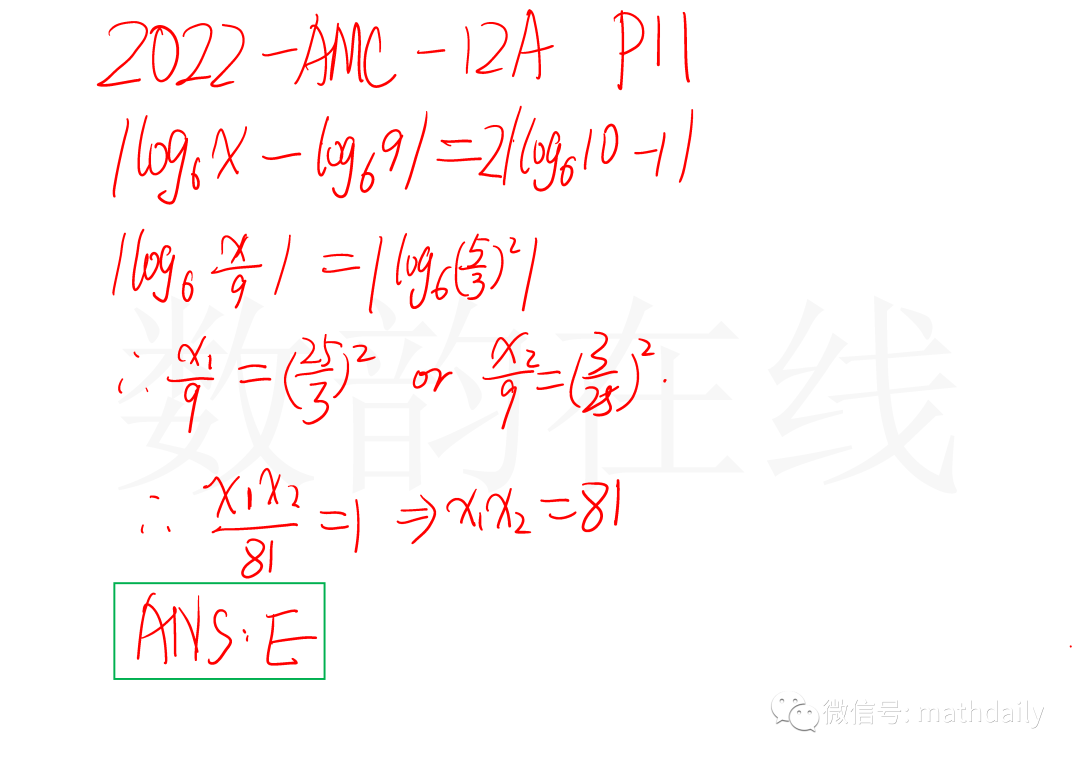 2022-AMC-12A P11
|log₆x - log₆9| = 2|log₆10 - 1|
|log₆ x/9| = |log₆(5/3)²|
∴ x₁/9 = (25/3)² or x₂/9 = (3/25)².
数韵在线
∴ x₁x₂/81 = 1 ⇒ x₁x₂ = 81
ANS: E
微信号: mathdaily